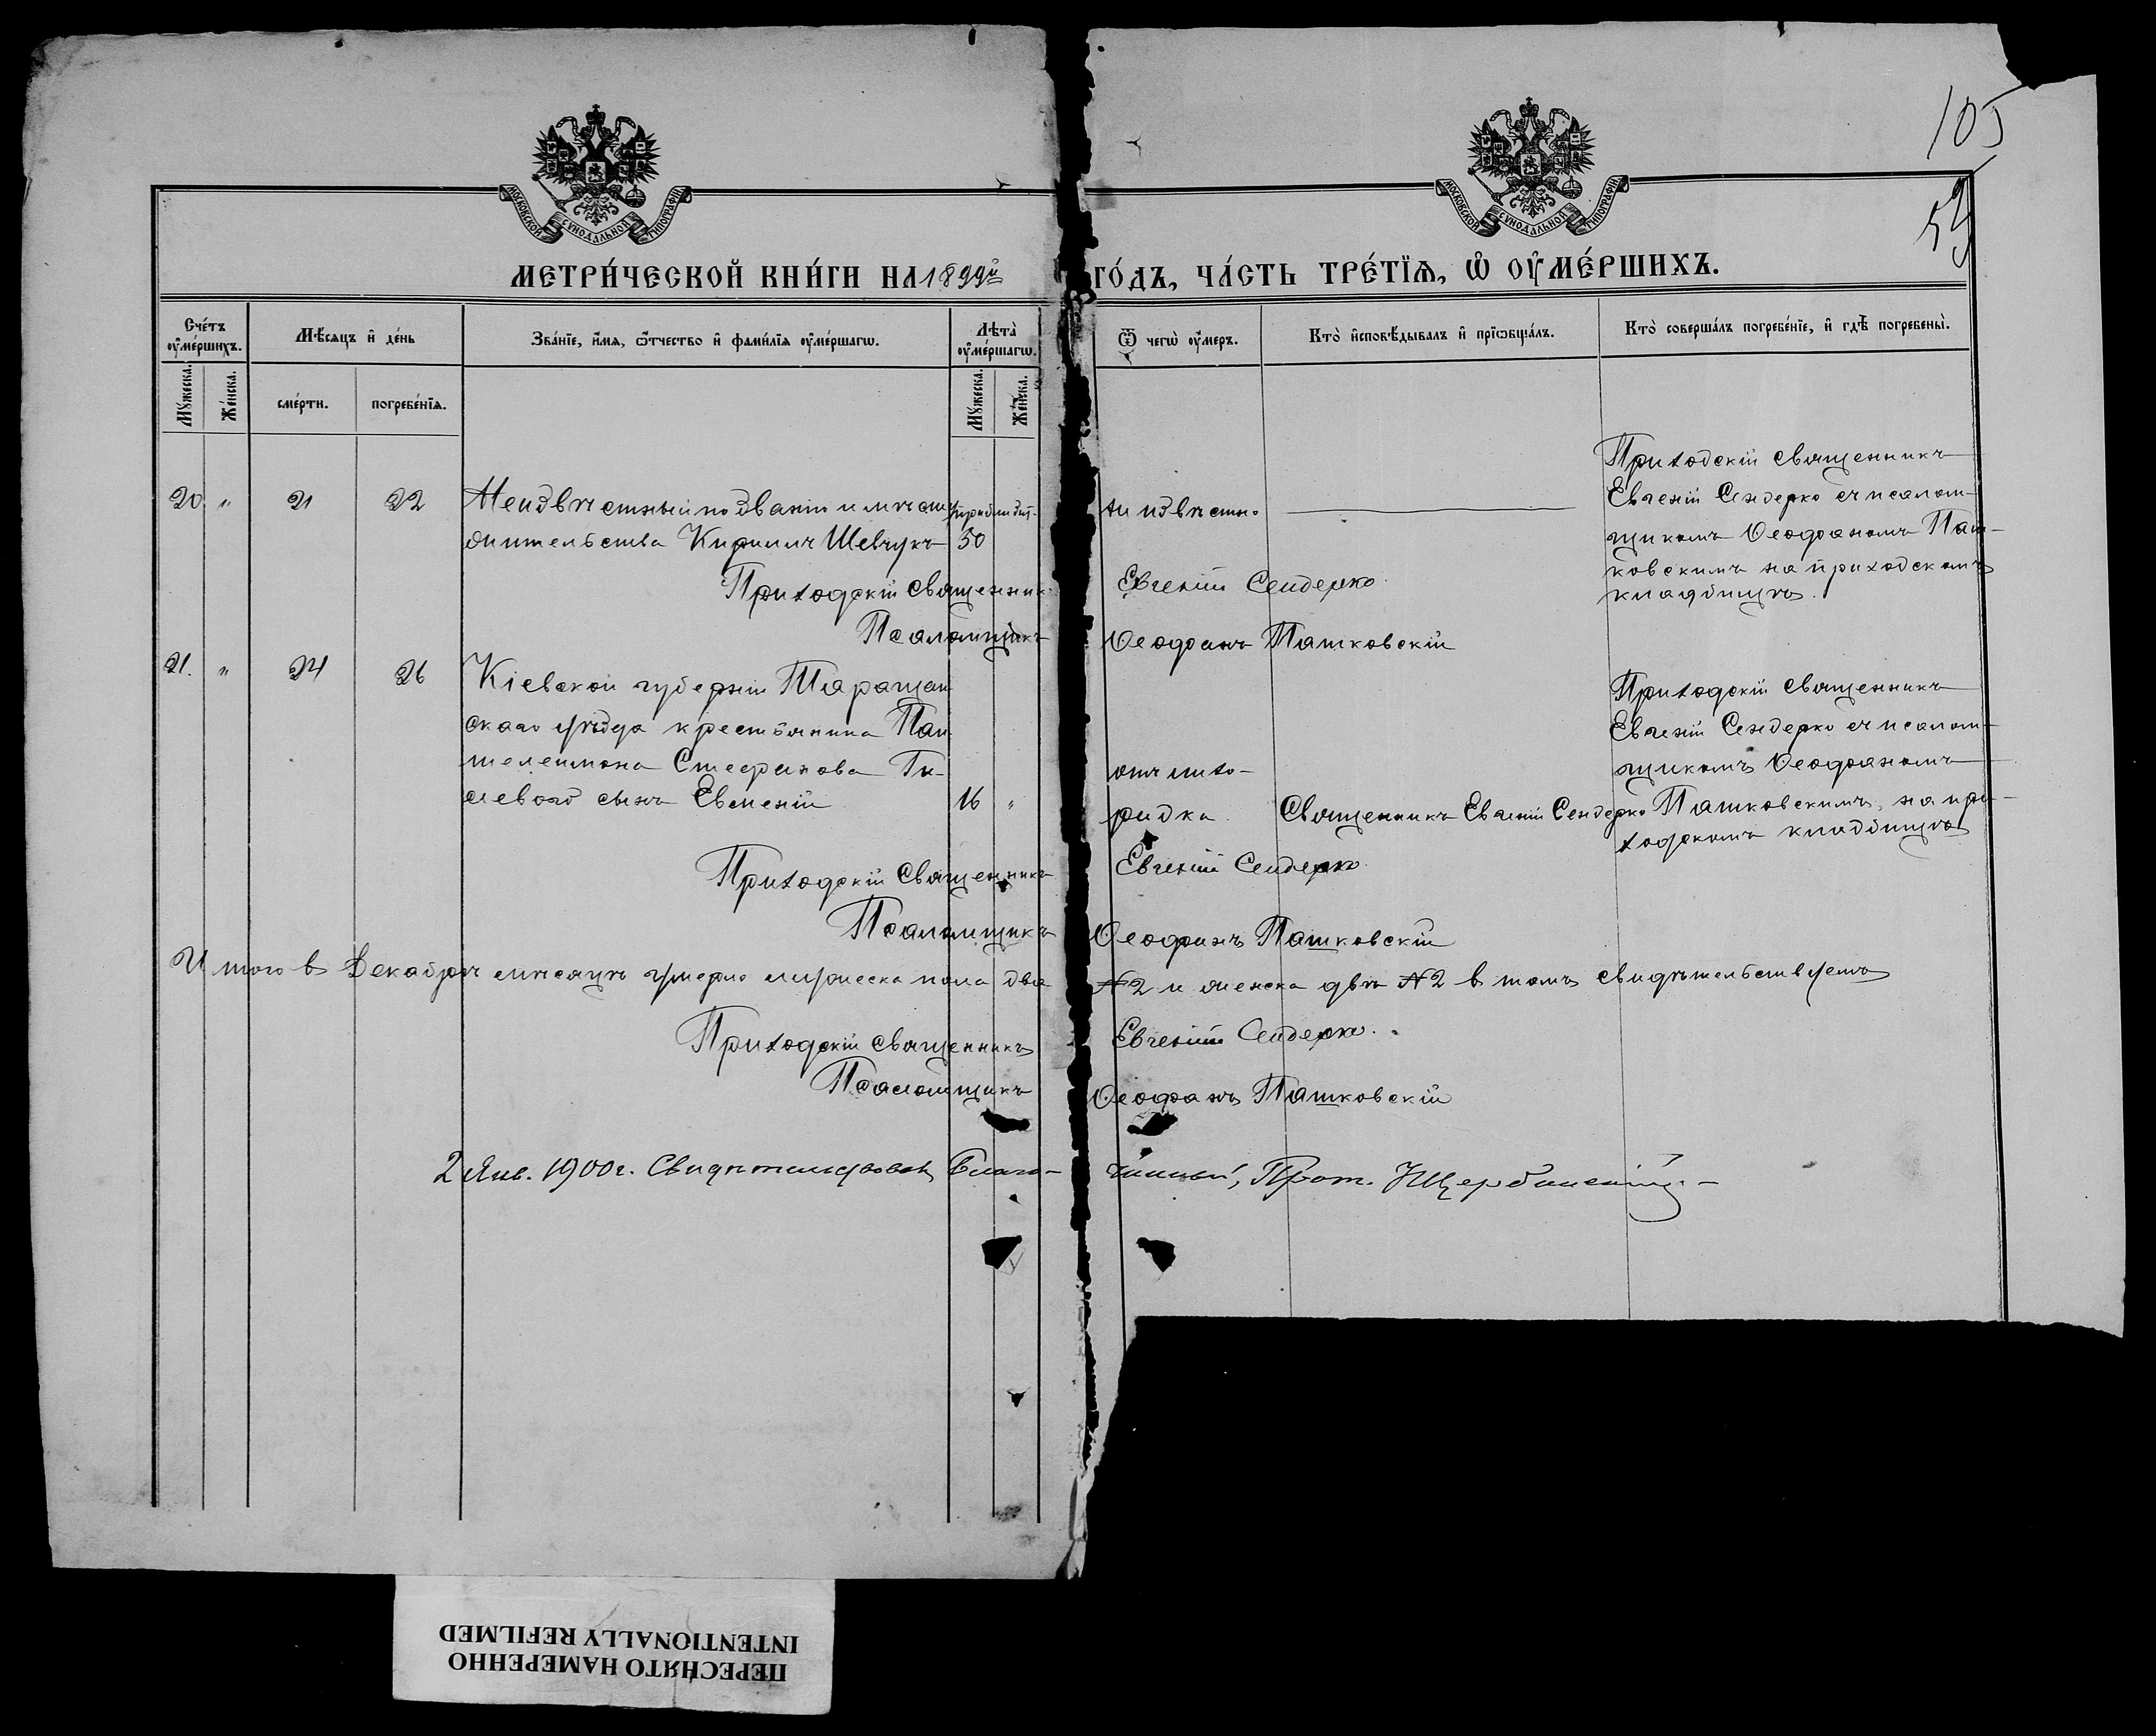 105
59
МОСКОВСКОЙ СѴНОДАЛЬНОЙ ТИПОГРАФІИ
МОСКОВСКОЙ СѴНОДАЛЬНОЙ ТИПОГРАФІИ
МЕТРИ́ЧЕСКОЙ КНИ́ГИ НА 1899й ГО́ДЪ, ЧА́СТЬ ТРЕ́ТЇѦ, Ѡ ОУМЕ́РШИХЪ.
Сче́тъ оуме́ршихъ.
Мѣ́сяцъ и де́нь
Зва́нїе, и́мѧ, ѻ́тчество и фами́лїѧ оуме́ршагѡ.
Лѣта̀ оуме́ршагѡ.
Ѿ чегѡ̀ оу́меръ.
Кто̀ исповѣ́дывалъ и прїѡбща́лъ.
Кто̀ соверша́лъ погребе́нїе, и гдѣ̀ погребены̀.
Му́жеска.
Же́нска.
сме́рти.
погребе́нїѧ.
Му́жеска.
Же́нска.
20. " 21 22
Неизвѣстный по званію и мѣсту
жительства Кириллъ Шевчукъ 50
неизвѣстно
Приходскій священникъ
Евгеній Сендерко съ псалом-
щикомъ Ѳеофаномъ Паш-
ковскимъ на приходскомъ
кладбищѣ.
Приходскій священникъ Евгеній Сендерко
Псаломщикъ Ѳеофанъ Пашковскій
21. " 24 26
Кіевской губерніи Таращан-
скаго уѣзда крестьянина Пан-
телеимона Стефанова
сынъ Евмений 16 "
отъ лихо-
радки
Священникъ Евгеній Сендерко
Приходскій священникъ
Евгеній Сендерко съ псалом-
щикомъ Ѳеофаномъ
Пашковскимъ, на при-
ходскомъ кладбищѣ
Приходскій священникъ Евгеній Сендерко
Псаломщикъ Ѳеофанъ Пашковскій
Итого въ Декабрѣ мѣсяцѣ умерло мужеска пола два №2 и женска двѣ №2 въ томъ свидѣтельствуемъ
Приходскій священникъ Евгеній Сендерко.
Псаломщикъ Ѳеофанъ Пашковскій
2 Янв. 1900 г. Свидѣтельствовалъ Благо-чинный, Прот. Щербинскій
ПЕРЕСНЯТО НАМЕРЕННО
INTENTIONALLY REFILMED